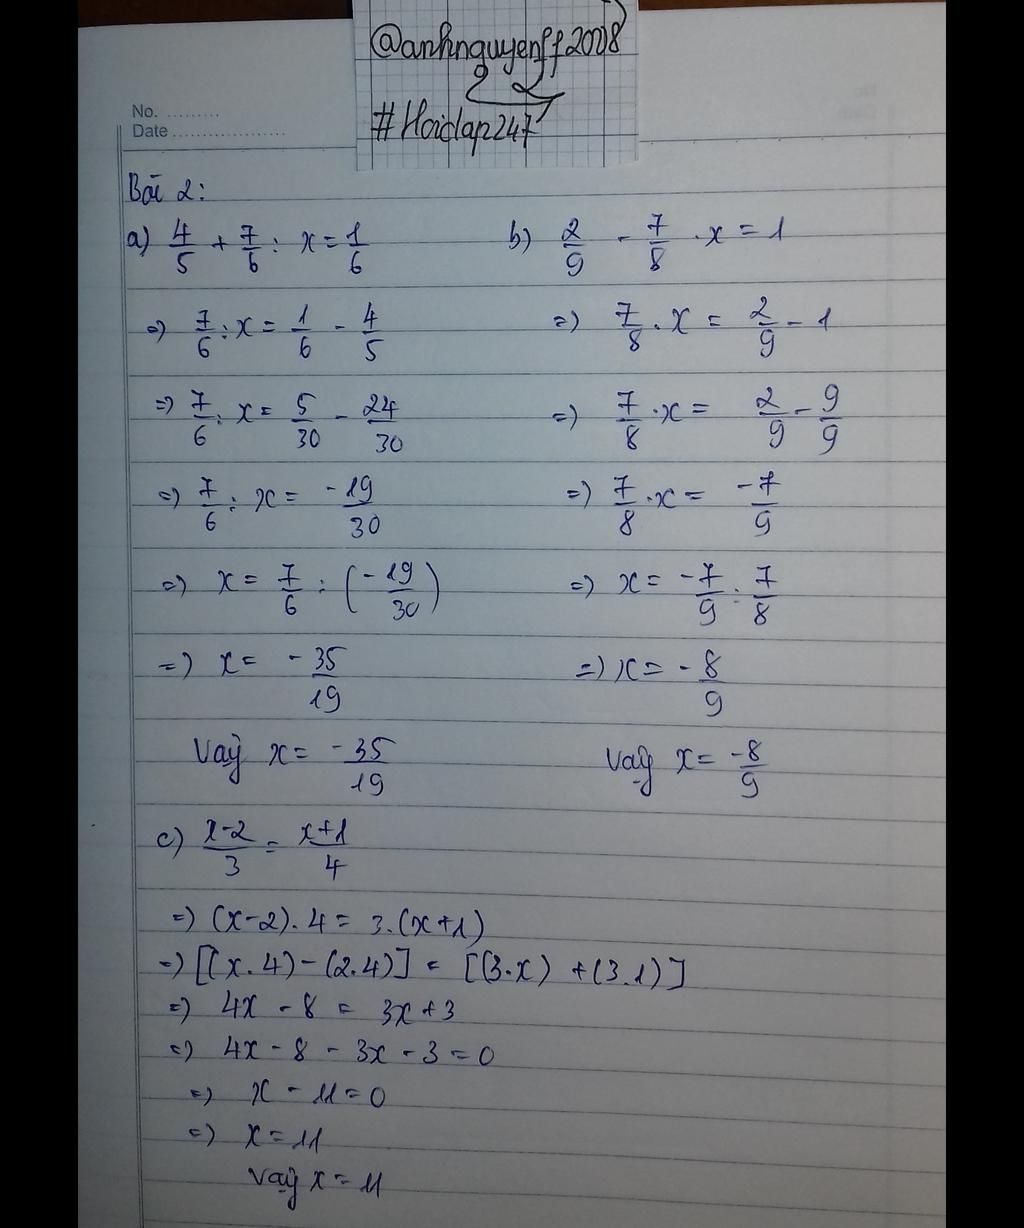 @anhnguyenff2008
#Hoidap247
No. .........
Date ...................
Bài 2:
a) 4/5 + 7/6 : x = 1/6
=> 7/6 : x = 1/6 - 4/5
=> 7/6 : x = 5/30 - 24/30
=> 7/6 : x = -19/30
=> x = 7/6 : (-19/30)
=> x = -35/19
Vậy x = -35/19
b) 2/9 - 7/8 . x = 1
=> 7/8 . x = 2/9 - 1
=> 7/8 . x = 2/9 - 9/9
=> 7/8 . x = -7/9
=> x = -7/9 : 7/8
=> x = -8/9
Vậy x = -8/9
c) x-2/3 = x+1/4
=> (x-2). 4 = 3.(x+1)
=> [(x.4)-(2.4)] = [(3.x) +(3.1)]
=> 4x - 8 = 3x+3
=> 4x - 8 - 3x - 3 = 0
=> x - 11 = 0
=> x = 11
Vậy x = 11